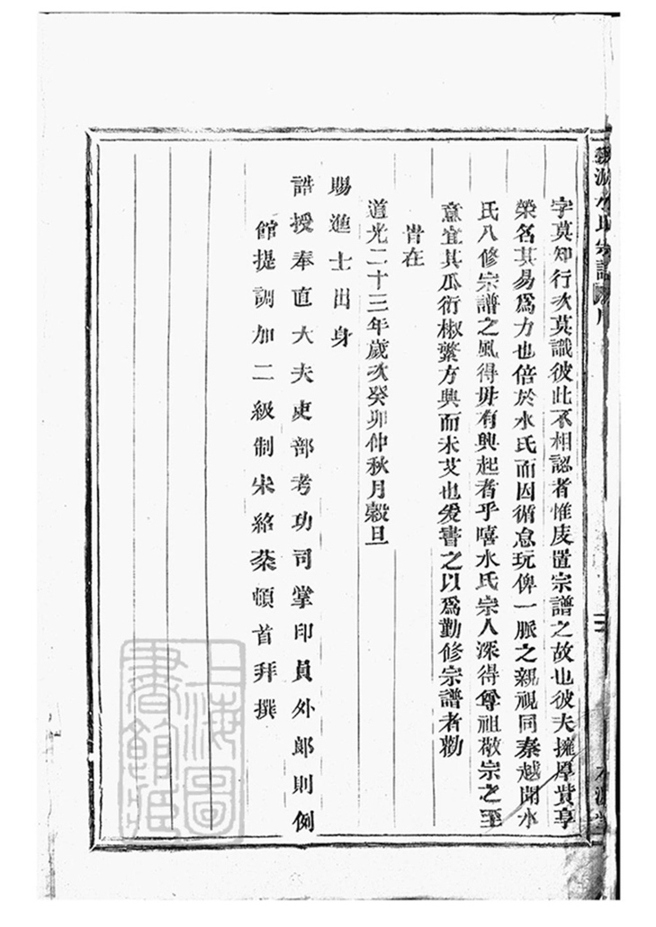 字莫知行次莫識彼此不相認者惟庋置宗譜之故也彼夫擁厚貲享
榮名其易為力也倍於水氏而因循怠玩俾一脈之親視同秦越聞水
氏八修宗譜之風得毋有興起者乎嘻水氏宗人深得尊祖敬宗之至
意宜其瓜衍椒繁方興而未艾也爰書之以為勤修宗譜者勸
道光二十三年歲次癸卯仲秋月穀旦
賜進士出身
誥授奉直大夫吏部考功司掌印員外郎則例
館提調加二級制宋紹棻頓首拜撰
上海圖書館藏